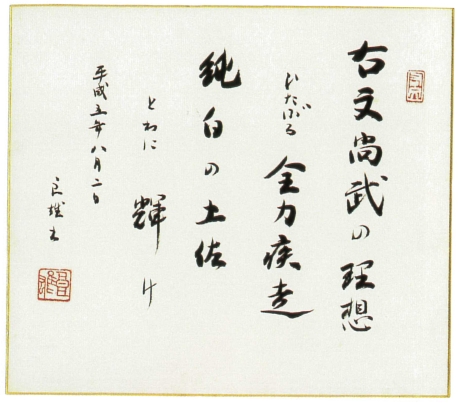 右文尚武の理想
ひたぶる 全力疾走
純白の土佐
とわに 輝け
平成五年八月二日
良雄書